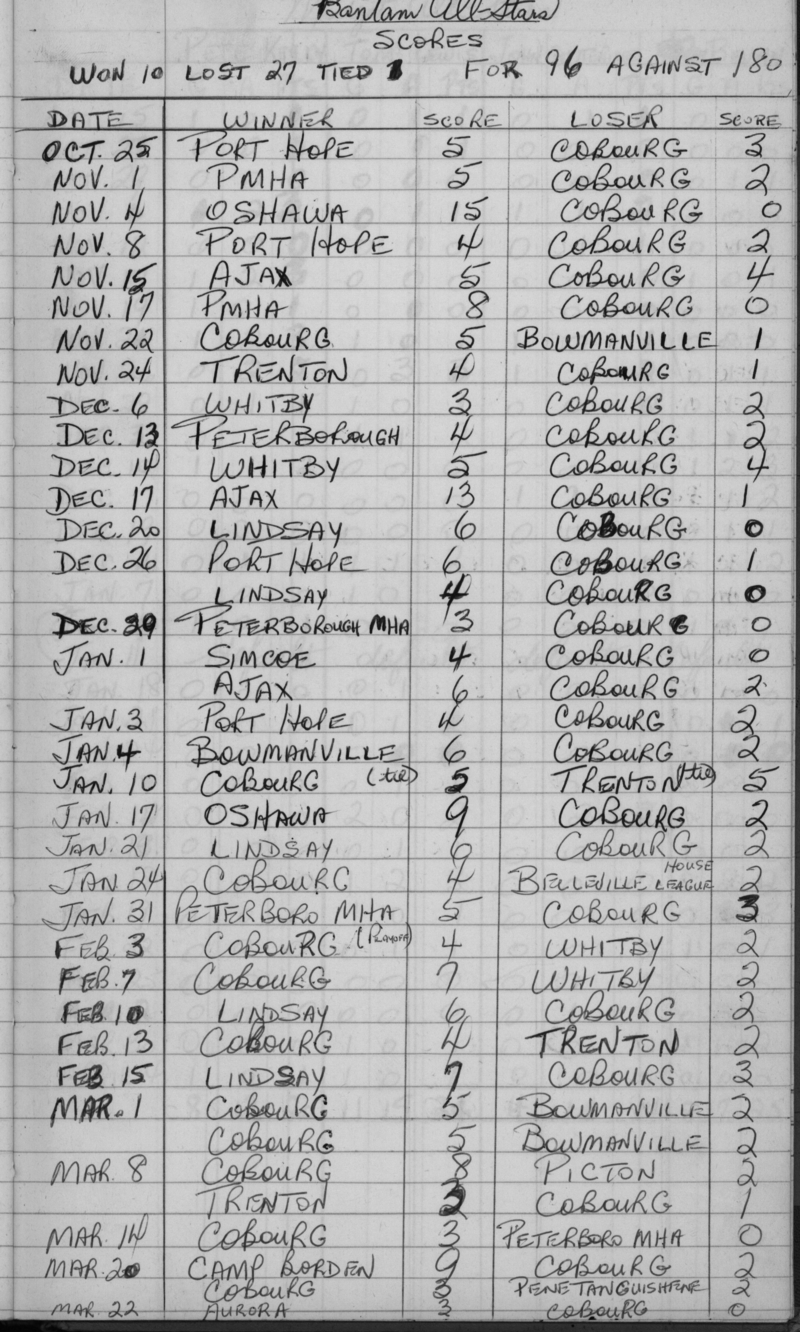 Bantam All-Stars
SCORES
WON 10 LOST 27 TIED 1 FOR 96 AGAINST 180
DATE WINNER SCORE LOSER SCORE
OCT. 25 PORT HOPE 5 COBOURG 3
NOV. 1 PMHA 5 COBOURG 2
NOV. 4 OSHAWA 15 COBOURG 0
NOV. 8 PORT HOPE 4 COBOURG 2
NOV. 15 AJAX 5 COBOURG 4
NOV. 17 PMHA 8 COBOURG 0
NOV. 22 COBOURG 5 BOWMANVILLE 1
NOV. 24 TRENTON 4 COBOURG 1
DEC. 6 WHITBY 3 COBOURG 2
DEC. 13 PETERBOROUGH 4 COBOURG 2
DEC. 14 WHITBY 5 COBOURG 4
DEC. 17 AJAX 13 COBOURG 1
DEC. 20 LINDSAY 6 COBOURG 0
DEC. 26 PORT HOPE 6 COBOURG 1
LINDSAY 4 COBOURG 0
DEC. 29 PETERBOROUGH MHA 3 COBOURG 0
JAN. 1 SIMCOE 4 COBOURG 0
AJAX 6 COBOURG 2
JAN. 3 PORT HOPE 4 COBOURG 2
JAN. 4 BOWMANVILLE 6 COBOURG 2
JAN. 10 COBOURG (tie) 5 TRENTON (tie) 5
JAN. 17 OSHAWA 9 COBOURG 2
JAN. 21 LINDSAY 6 COBOURG 2
JAN 24 COBOURG 4 BELLEVILLE HOUSE LEAGUE 2
JAN. 31 PETERBORO MHA 5 COBOURG 3
FEB. 3 COBOURG (Playoff) 4 WHITBY 2
FEB. 7 COBOURG 7 WHITBY 2
FEB. 10 LINDSAY 6 COBOURG 2
FEB. 13 COBOURG 4 TRENTON 2
FEB 15 LINDSAY 7 COBOURG 3
MAR. 1 COBOURG 5 BOWMANVILLE 2
COBOURG 5 BOWMANVILLE 2
MAR. 8 COBOURG 8 PICTON 2
TRENTON 2 COBOURG 1
MAR. 14 COBOURG 3 PETERBORO MHA 0
MAR. 20 CAMP BORDEN 9 COBOURG 2
COBOURG 3 PENETANGUISHENE 2
MAR. 22 AURORA 3 COBOURG 0